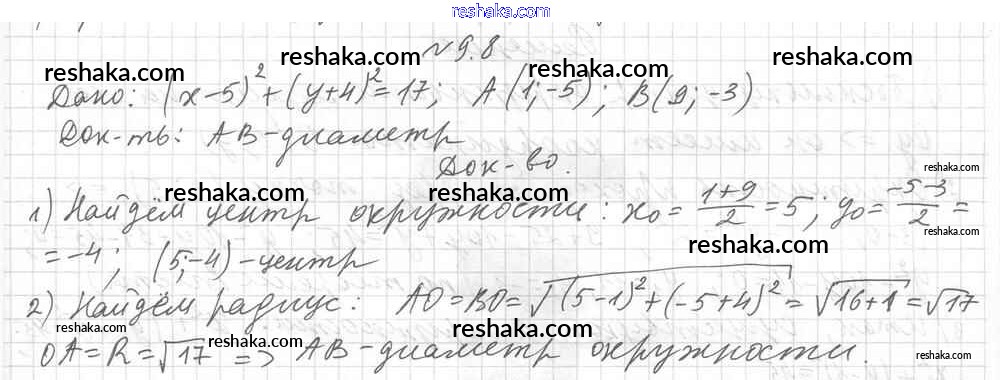 reshaka.com
№ 9.8
Дано: (x-5)²+(y+4)²=17; A(1;-5); B(9;-3)
Док-ть: AB-диаметр
Док-во.
1) Найдём центр окружности: x₀ = (1+9)/2 = 5; y₀ = (-5-3)/2 =
= -4; (5;-4)-центр
2) Найдём радиус: AO=BO=√((5-1)²+(-5+4)²) = √(16+1) = √17
OA=R=√17 => AB-диаметр окружности.
reshaka.com
reshaka.com
reshaka.com
reshaka.com
reshaka.com
reshaka.com
reshaka.com
reshaka.com
reshaka.com
reshaka.com
reshaka.com
reshaka.com
reshaka.com